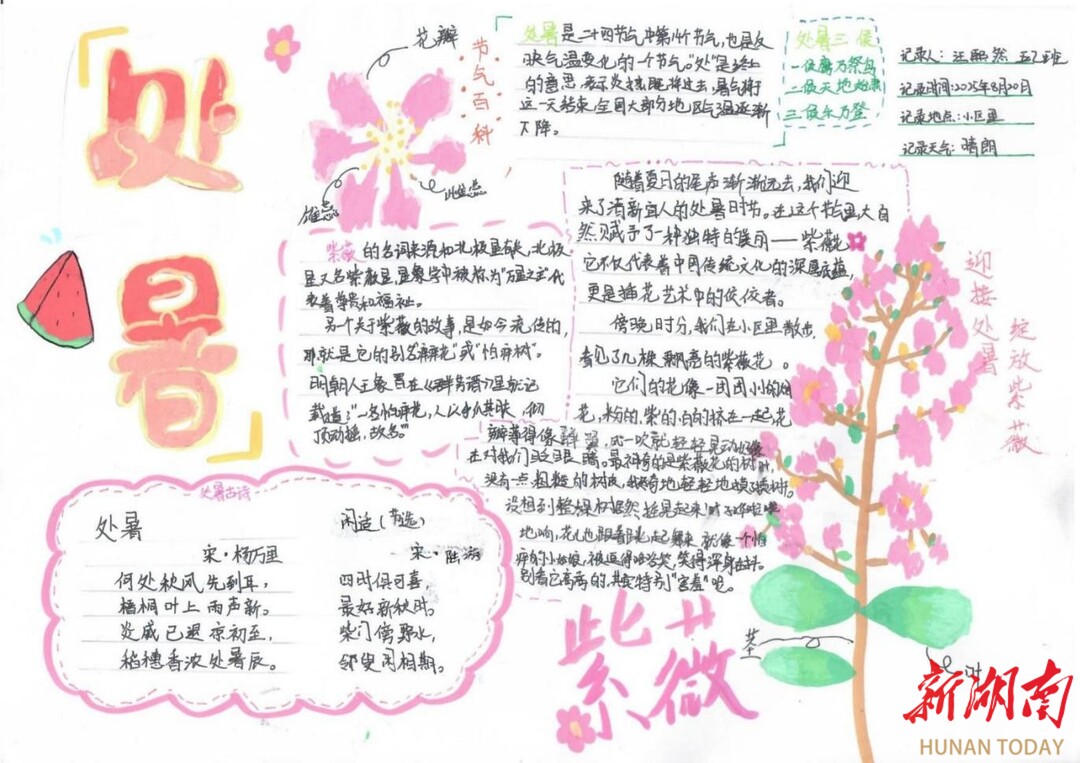 处暑
花瓣
雌蕊
雄蕊
节气百科
处暑是二十四节气中第14个节气,也是反
映气温变化的一个节气。"处"是终止
的意思,表示炎热即将过去,暑气将
这一天结束,全国大部分地区气温逐渐
下降。
处暑三候
一候鹰乃祭鸟
二候天地始肃
三候禾乃登
记录人:汪熙然 五2班
记录时间:2025年8月20日
记录地点:小区里
记录天气:晴朗
紫薇的名词来源和北极星有关,北极
星又名紫薇星,星象学中被称为"万星之主"代
表着尊贵和福祉。
另个关于紫薇的故事,是如今流传的,
那就是它的别名麻花或"怕痒树"。
明朝人王象晋在《群芳谱》里就记
载道:"一名怕痒花,人以手爪其肤,彻
顶动摇,故名。"
随着夏日的尾声渐渐远去,我们迎
来了清新宜人的处暑时节。在这个节气里大自
然赋予了一种独特的美丽——紫薇
它不仅代表着中国传统文化的深厚底蕴,
更是插花艺术中的佼佼者。
傍晚时分,我们在小区里散步,
看见了几棵飘亮的紫薇花。
它们的花像一团团小的烟
花,粉的,紫的白的挤在一起花
瓣薄得像蝉翼,风一吹就轻轻晃动好像
在对我们眨眼睛。最神奇的是紫薇花的树干,
没有一点粗糙的树皮,我好奇地轻轻地摸了摸树。
没想到整棵树居然摇晃起来!叶子哗啦啦
地响,花儿也跟着跳起舞来,就像一个怕
痒的小姑娘,被逗得咯咯笑,笑得浑身在抖。
别看它高高的,其实特别"害羞"呢。
处暑古诗
处暑
宋·杨万里
何处秋风先到耳,
梧桐叶上雨声新。
炎威已退凉初至,
稻穗香浓处暑辰。
闲适(节选)
宋·陆游
四时俱可喜,
最好新秋时。
柴门傍野水,
邻叟闲相期。
迎接处暑
绽放紫薇
紫薇
茎
叶
新湖南
HUNAN TODAY